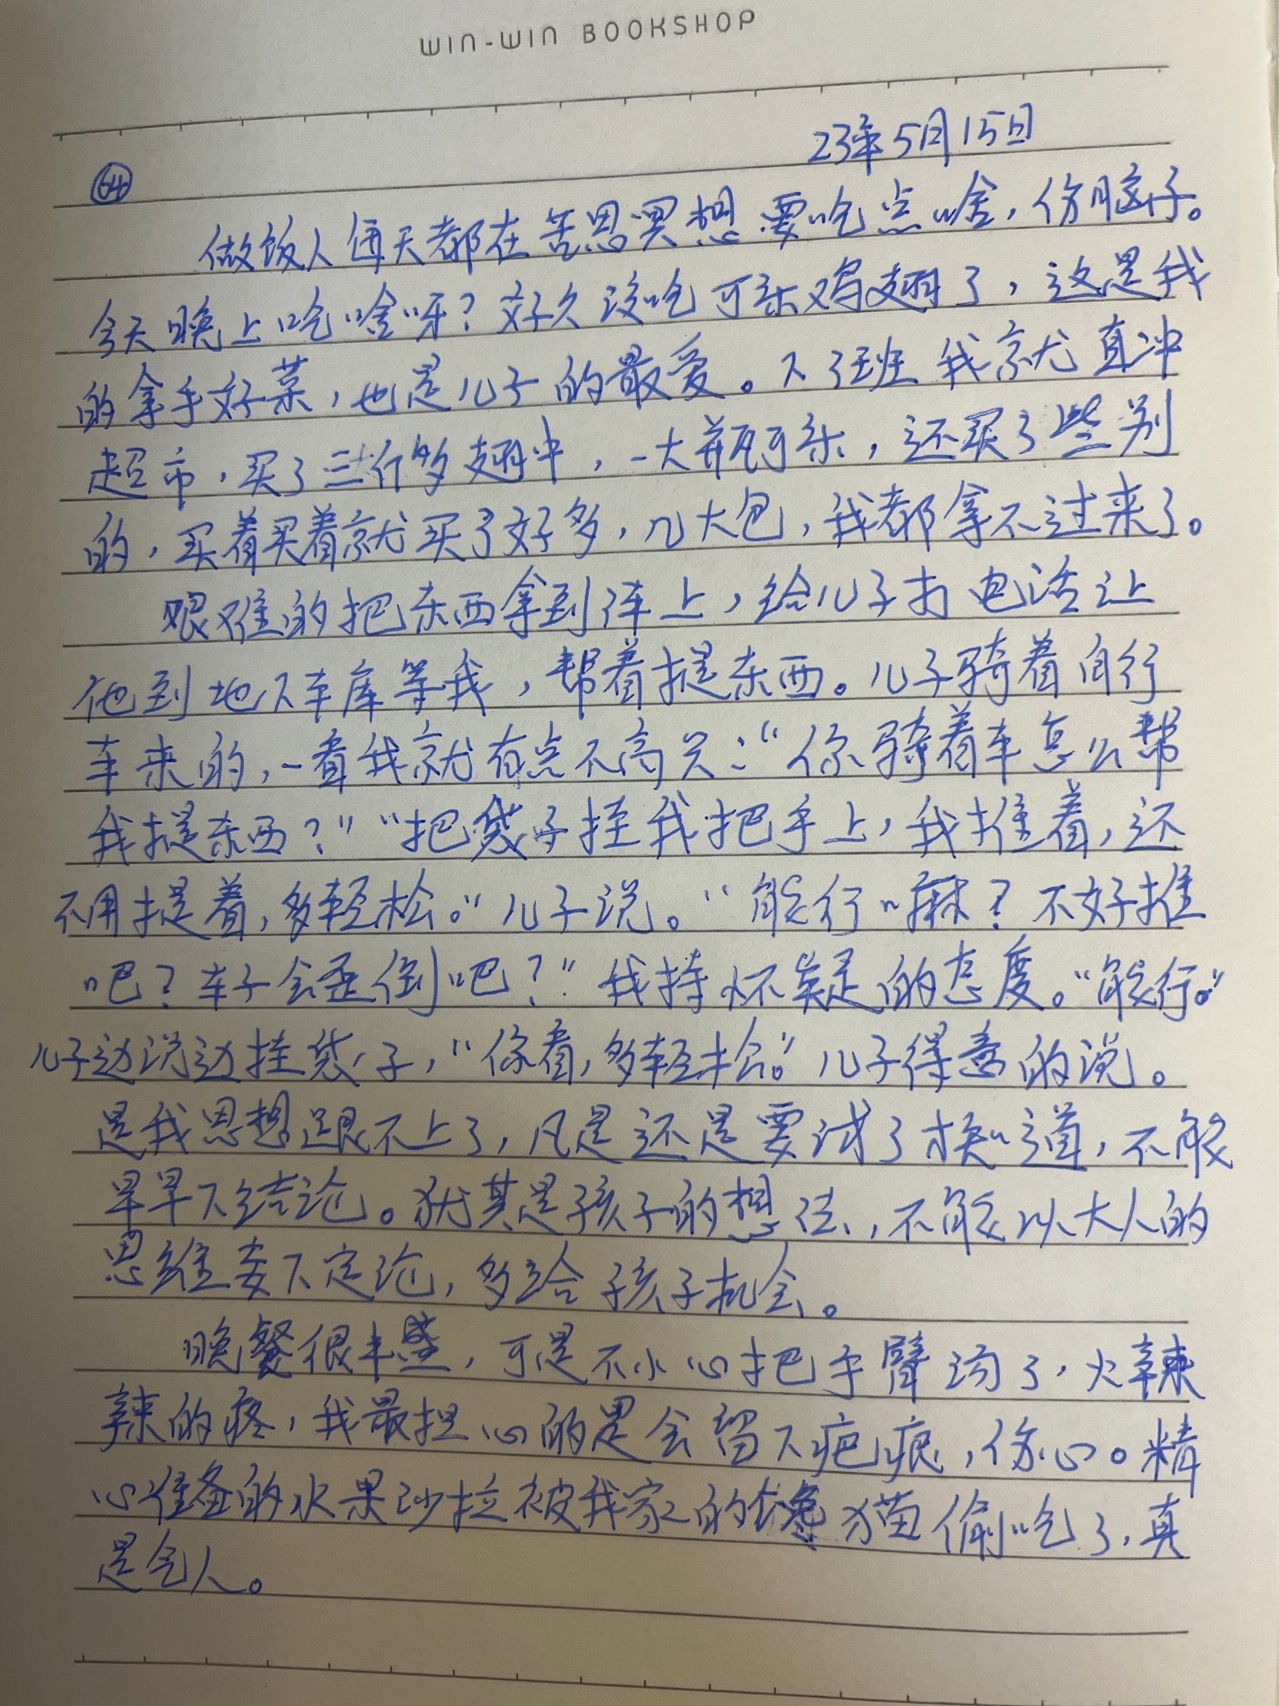 WIN-WIN BOOKSHOP
23年5月15日
64
做饭人每天都在苦思冥想要吃点啥，伤脑子。
今天晚上吃啥呀？好久没吃可乐鸡翅了，这是我
的拿手好菜，也是儿子的最爱。下了班我就直冲
超市，买了三斤多翅中，一大瓶可乐，还买了些别
的，买着买着就买了好多，几大包，我都拿不过来了。
艰难的把东西拿到车上，给儿子打电话让
他到地下车库等我，帮着提东西。儿子骑着自行
车来的，一看我就有点不高兴：“你骑着车怎么帮
我提东西？”“把袋子挂我把手上，我推着，还
不用提着，多轻松。”儿子说。“能行嘛？不好推
吧？车子会歪倒吧？”我持怀疑的态度。“能行。”
儿子边说边挂袋子，“你看，多轻松。”儿子得意的说。
是我思想跟不上了，凡是还是要试了才知道，不能
早早下结论。犹其是孩子的想法，不能以大人的
思维委下定论，多给孩子机会。
晚餐很丰盛，可是不小心把手臂汤了，火辣
辣的疼，我最担心的是会留下疤痕，伤心。精
心准备的水果沙拉被我家的馋猫偷吃了，真
是气人。